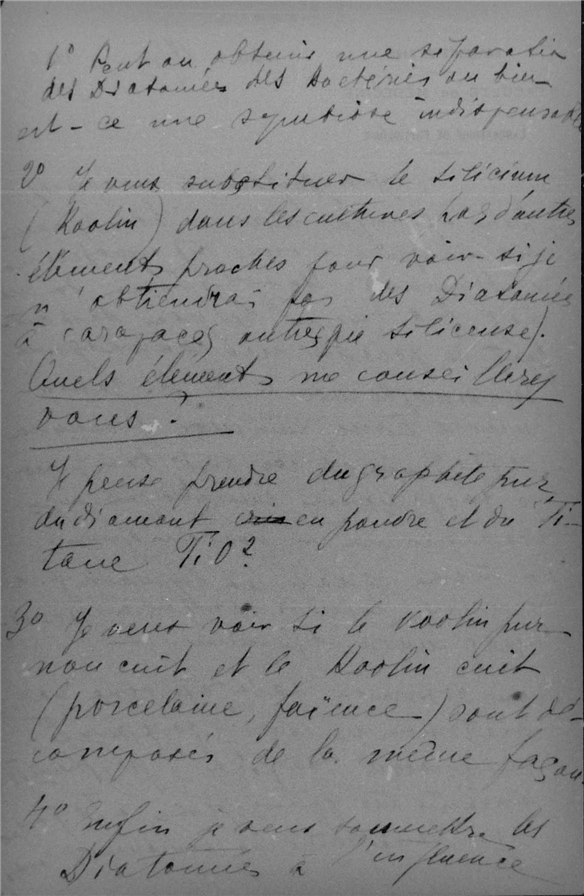 1° Peut on obtenir une séparation
des Diatomées des Bactéries ou bien
est-ce une symbiose indispensable
2° Je veux substituer le silicium
(Kaolin) dans les cultures par d'autres
éléments proches pour voir si je
n'obtiendrai pas des Diatomées
à carapaces autres que siliceuse).
Quels éléments me conseillerez
vous ?
Je pense prendre du graphite pur,
du diamant en poudre et du Ti-
tane TiO2
3° Je veux voir si le Kaolin pur
non cuit et le Kaolin cuit
(porcelaine, faïence) sont dé-
composés de la même façon.
4° Enfin je veux soumettre les
Diatomées à l'influence